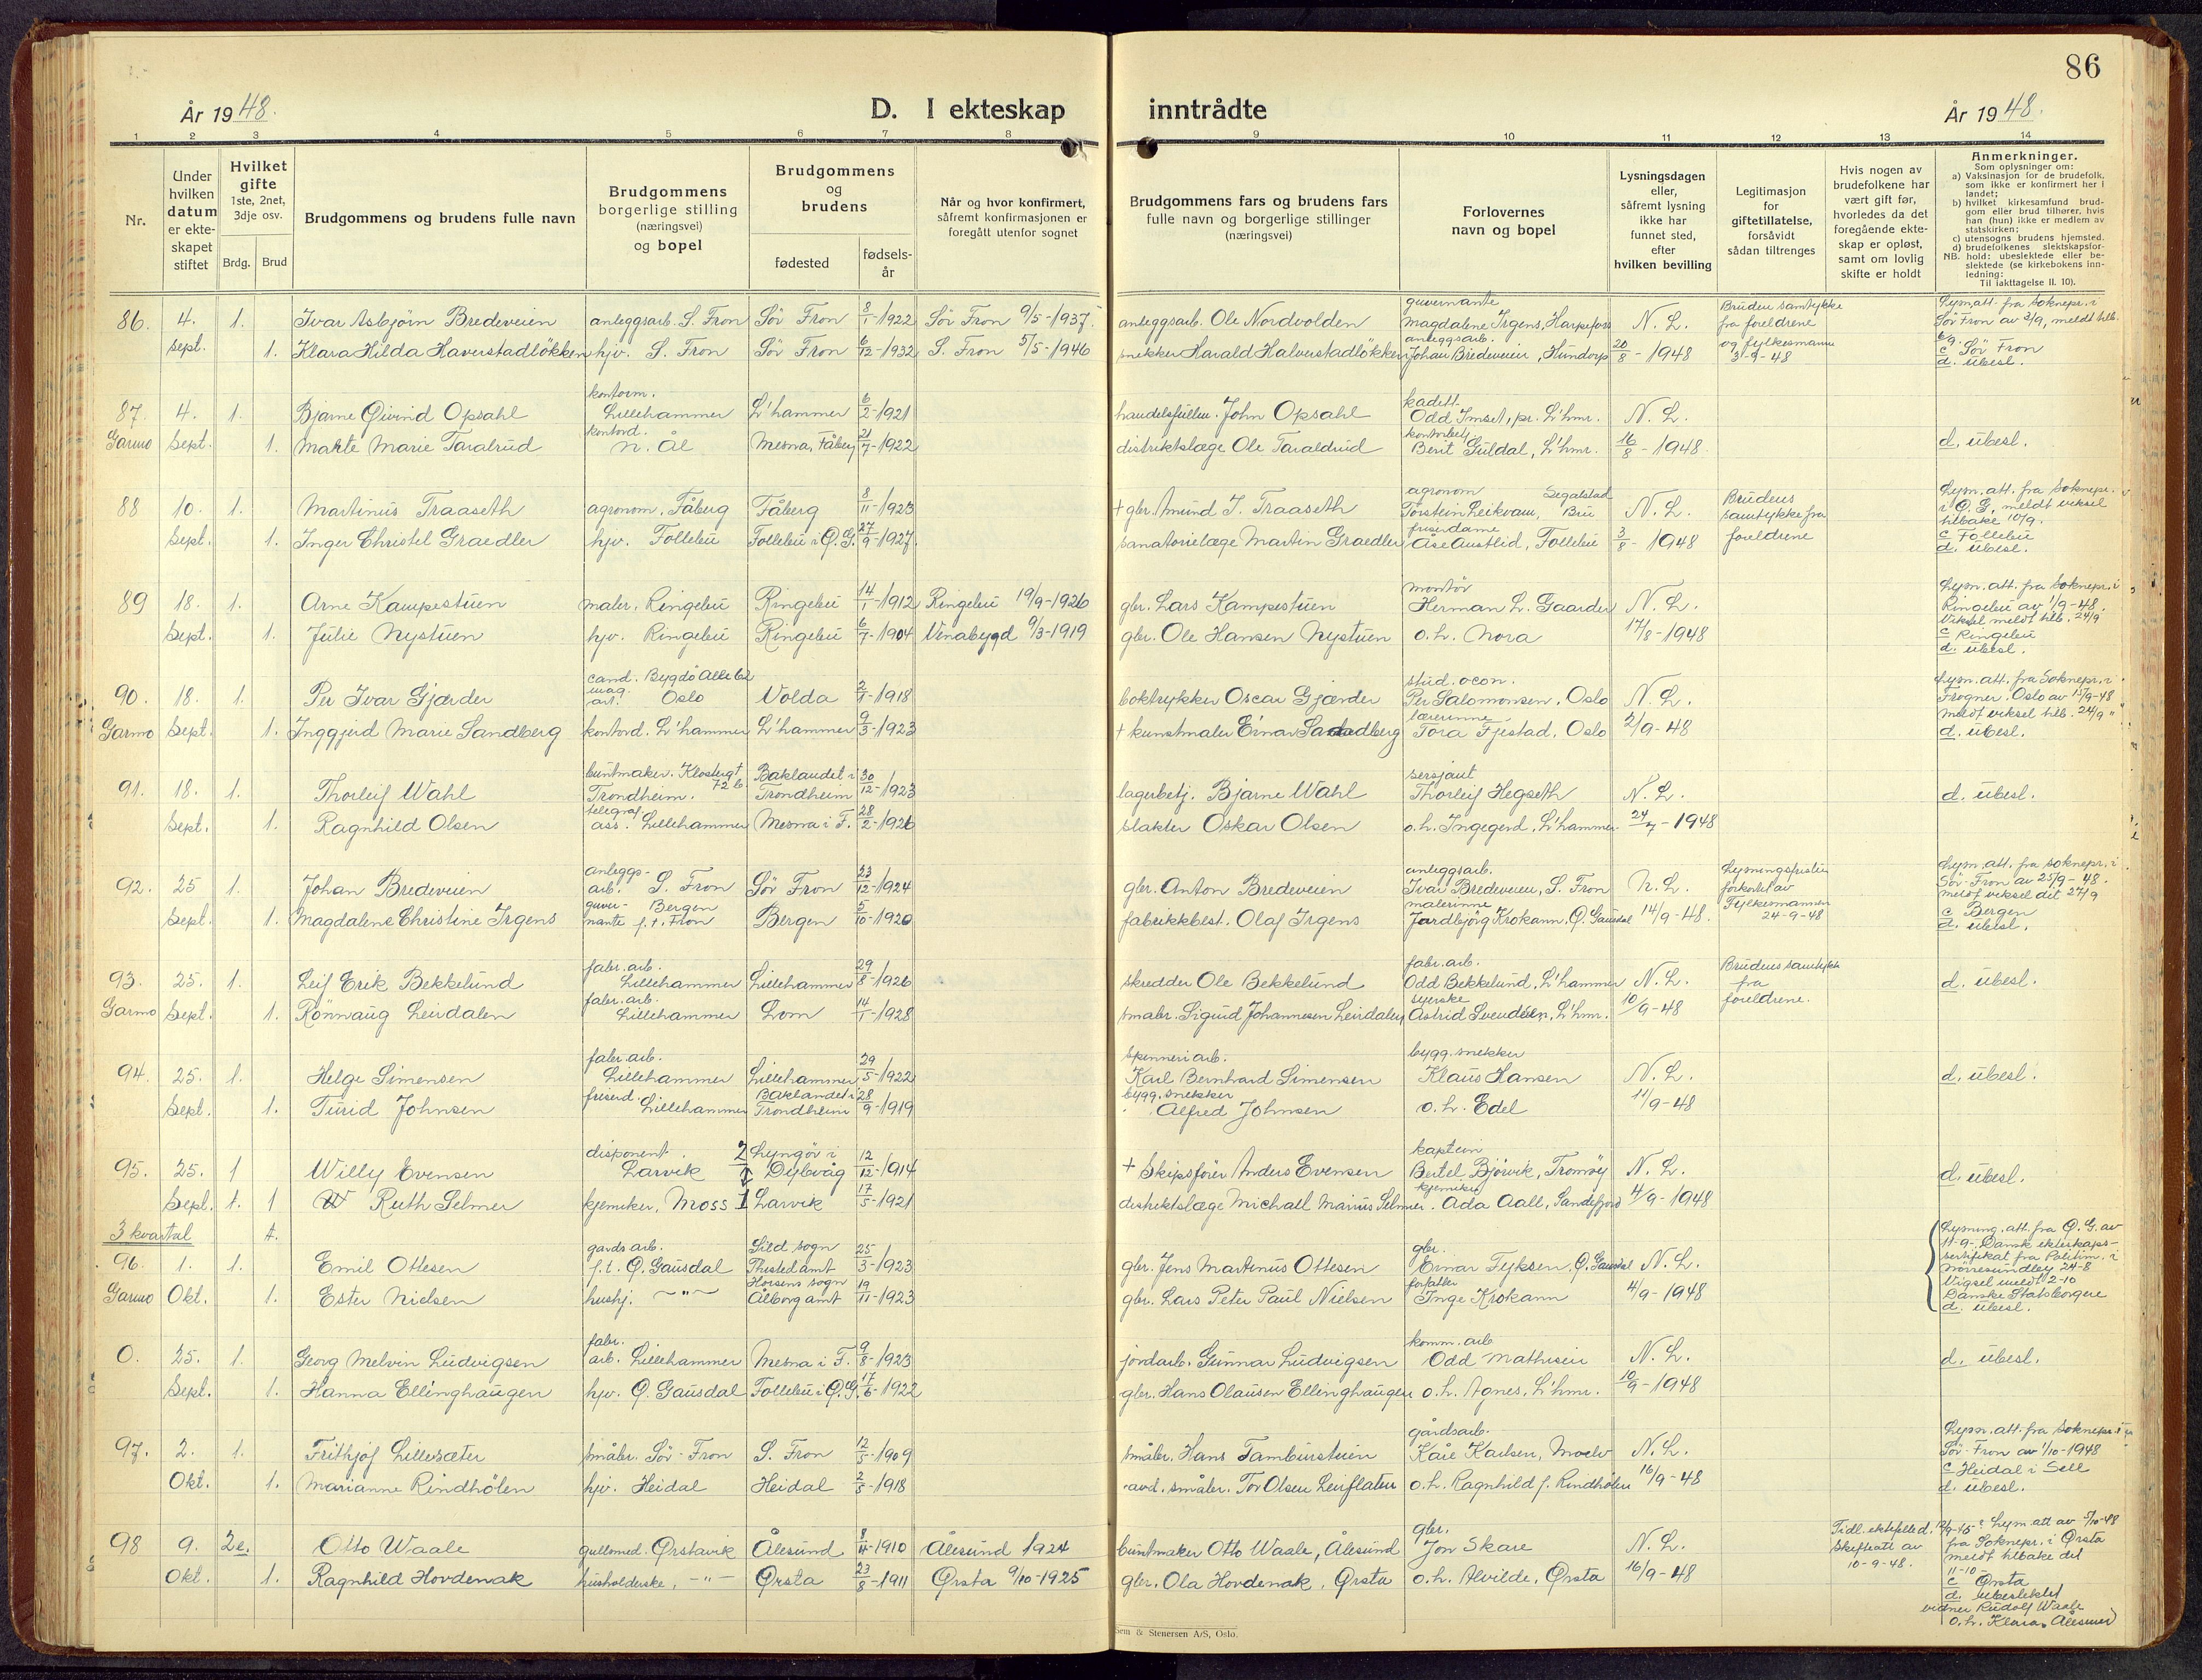 86
År 1948.
D. I ekteskap inntrådte
År 1948.
1 2 3 4 5 6 7 8 9 10 11 12 13 14
Nr.
Under hvilken datum er ekteskapet stiftet
Hvilket gifte 1ste, 2net, 3dje osv.
Brdg. Brud
Brudgommens og brudens fulle navn
Brudgommens borgerlige stilling (næringsvei) og bopel
Brudgommens og brudens
fødested
fødselsår
Når og hvor konfirmert, såfremt konfirmasjonen er foregått utenfor sognet
Brudgommens fars og brudens fars fulle navn og borgerlige stillinger (næringsvei)
Forlovernes navn og bopel
Lysningsdagen eller, såfremt lysning ikke har funnet sted, efter hvilken bevilling
Legitimasjon for giftetillatelse, forsåvidt sådan tiltrenges
Hvis nogen av brudefolkene har vært gift før, hvorledes da det foregående ekteskap er opløst, samt om lovlig skifte er holdt
Anmerkninger.
Som oplysninger om:
a) Vaksinasjon for de brudefolk, som ikke er konfirmert her i landet;
b) hvilket kirkesamfund brudgom eller brud tilhører, hvis han (hun) ikke er medlem av statskirken;
c) utensogns brudens hjemsted.
d) brudefolkenes slektskapsforhold: ubeslektede eller beslektede (se kirkebokens innledning:
NB.
Til iakttagelse II. 10).
86. 4. 1. Ivar Asbjørn Bredeveien anleggsarb. S. Fron Sör Fron 8/1-1922 Sör Fron 9/5-1937. anleggsarb. Ole Nordvolden guvernante Magdalene Irgens, Harpefoss N. L. Brudens samtykke fra foreldrene og fylkesmann 3-9-48 Lysn.att. fra soknepr. i Sör Fron av 3/9, meldt tilb.
sept. 1. Klara Hilda Haverstadlökken hjv. S. Fron Sör Fron 6/12-1932 S. Fron 5/5-1946 snekker Harald Halverstadlökken anleggsarb. Johan Bredeveien, Hundorp 20/8-1948 6/9. c Sör Fron d. ubesl.
87. 4. 1. Bjarne Øivind Opsahl kontorm. Lillehammer L'hammer 6/2-1921 handelsfullm. John Opsahl kadett Odd Imset, pr. L'hmr. N. L.
Garmo Sept. 1. Marte Marie Taralrud kontord. N. Ål Mesna, Fåberg 21/7-1922 distriktslæge Ole Taraldrud kontorbetj Berit Guldal, L'hmr. 16/8-1948 d. ubesl.
88 10. 1. Martinus Traaseth agronom. Fåberg Fåberg 8/11-1923 + gbr. Amund J. Traaseth agronom Segalstad Torstein Leikvam, Bru N. L. Brudens samtykke fra foreldrene Lysn. att. fra soknepr. i Ø. G., meldt veksel tilbake 10/9.
Sept. 1. Inger Christel Graedler hjv. Follebu Follebu i Ø. G. 27/9-1927. sanatorielæge Martin Graedler friserdame Åse Austlid, Follebu 3/8-1948 c Follebu d. ubesl.
89 18. 1. Arne Kampestuen maler. Ringebu Ringebu 14/1-1912 Ringebu 19/9-1926 gbr. Lars Kampestuen montör Herman L. Gaarder N. L. Lysn. att. fra soknepr. i Ringebu av 1/9-48. Viksel meldt tilb. 24/9
Sept. 1. Julie Nystuen hjv. Ringebu Ringebu 6/7-1904 Venabygd 9/3-1919 gbr. Ole Hansen Nystuen o.h. Nora 17/8-1948 c Ringebu d. ubesl.
90. 18. 1. Per Ivar Gjærder cand. mag. art. Bygdö Alle 62 Oslo Volda 2/1-1918 boktrykker Oscar Gjærder stud. øcon. Per Salomonsen, Oslo N. L. Lysn. att. fra Soknepr. i Frogner. Oslo av 15/9-48 Meldt veksel tilb. 24/9
Garmo Sept. 1. Inggjerd Marie Sandberg kontord. L'hammer L'hammer 9/3-1923 + kunstmaler Einar Sandberg lærerinne Tora Fjestad, Oslo 2/9-48 d. ubesl.
91. 18. 1. Thorleif Wahl buntmaker. Klostergt 72 b. Trondheim. Baklandet i Trondheim 30/12-1923 lagerbetj. Bjarne Wahl sersjant Thorleif Hegseth N. L. d. ubesl.
Sept. 1. Ragnhild Olsen telegraf ass. Lillehammer Mesna i F. 28/2-1926 slakter Oskar Olsen o.h. Ingegerd, L'hammer 24/7-1948
92. 25 1. Johan Bredeveien anleggsarb. S. Fron Sör Fron 23/12-1924 gbr. Anton Bredeveien anleggsarb. Ivar Bredeveien, S. Fron N. L. Lysningsfristen forkortet av Fylkesmannen 24-9-48 Lysn. att. fra soknepr. i Sör-Fron av 25/9-48. meldt veksel dit 27/9
Sept. 1. Magdalene Christine Irgens guvernante Bergen f.t. Fron Bergen 5/10-1920 fabrikkbest. Olaf Irgens malerinne Jardbjörg Krokann, Ø. Gausdal 14/9-48. c Bergen d. ubesl.
93. 25. 1. Leif Erik Bekkelund fabr. arb. Lillehammer Lillehammer 29/8-1926 skredder Ole Bekkelund fabr. arb. Odd Bekkelund, L'hammer N. L. Brudens samtykke fra foreldrene. d. ubesl.
Garmo Sept. 1. Rönnaug Leirdalen fabr. arb. Lillehammer Lom 14/1-1928 småbr. Sigurd Johannesen Leirdalen syerske Astrid Svendsen, L'hmr. 10/9-48
94. 25. 1. Helge Simensen fabr. arb. Lillehammer Lillehammer 29/5-1922 Spenneri arb. Karl Bernhard Simensen bygg. snekker Klaus Hansen N. L. d. ubesl.
Sept. 1. Turid Johnsen friserd. Lillehammer Baklandet i Trondheim 28/9-1919 bygg. snekker Alfred Johnsen o.h. Edel 11/9-48
95. 25. 1 Willy Evensen disponent. Larvik 2 Lyngör i Dybvåg 12/12-1914 + Skipsförer Anders Evensen kaptein Bertel Bjørvik, Tromøy N. L. d. ubesl.
Sept. 1. 1 Ruth Selmer kjemiker, Moss 1 Larvik 17/5-1921 distriktslæge Michall Marius Selmer. kjemiker Ada Aall, Sandefjord 4/9-1948
3 kvartal
96. 1. 1. Emil Ottesen gårdsarb. f.t. Ø. Gausdal Sild sogn Thisted amt 25/3-1923 gbr. Jens Martinus Ottesen gbr. Einar Fyksen, Ø. Gausdal N. L. Lysning. att. fra Ø. G. av 11-9-. Dansk ekteskapssertifikat fra Politim. i Nörresundby 24-8 Vigsel meldt 2-10
Garmo Okt. 1. Ester Nielsen hushj. -"- Horsens sogn Ålborg amt 19/11-1923 gbr. Lars Peter Paul Nielsen forfatter Inge Krokann 4/9-1948 Danske Statsborgere d. ubesl.
0. 25. 1. Georg Melvin Ludvigsen fabr. arb. Lillehammer Mesna i F. 9/8-1923 jordarb. Gunnar Ludvigsen komm. arb Odd Mathisen N. L. d. ubesl.
Sept. 1. Hanna Ellinghaugen hjv. Ø. Gausdal Follebu i Ø.G. 17/6-1922 gbr. Hans Olausen Ellinghaugen o.h. Agnes, L'hmr. 10/9-1948
97. 2. 1. Frithjof Lillesæter småbr. Sör-Fron S. Fron 12/5-1909 småbr. Hans Tamburstuen gårdsarb. Kåre Karlsen, Moelv N. L. Lysn. att. fra soknepr. i Sör-Fron av 1/10-1948
Okt. 1. Marianne Rindhölen hjv. Heidal Heidal 2/5-1918 avd. småbr. Tor Olsen Leirflaten o.h. Ragnhild f. Rindhölen 16/9-48 c Heidal i Sell d. ubesl.
98 9. 2e. Otto Waale gullsmed. Ørstavik Ålesund 8/4-1910 Ålesund 1924 buntmaker Otto Waale, Ålesund gbr. Jon Skare N. L. Tidl. ektefelle d. Skifteatt av 10-9-48. Lysn. att av 5/10-48 fra Soknepr. i Ørsta meldt tilbake dit 11-10-
Okt. 1. Ragnhild Hovdenak husholderske, -"- Ørsta 23/8-1911 Ørsta 9/10-1925 gbr. Ola Hovdenak, Ørsta o.h. Alvilde, Ørsta 16/9-48 c Ørsta d. ubeslektet
vidner Rudolf Waale
o.h. Klara, Ålesund
Sem & Stenersen A/S, Oslo.